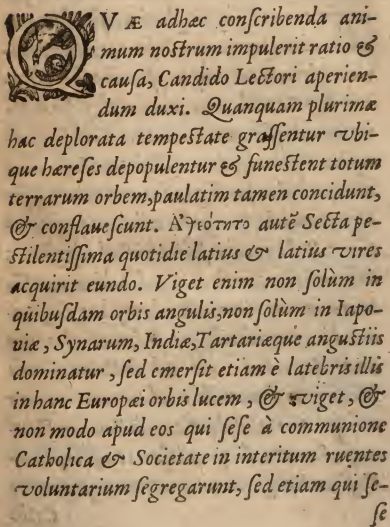 QVÆ adhæc conſcribenda ani-
mum noſtrum impulerit ratio &
cauſa, Candido Lectori aperien-
dum duxi. Quanquam plurimæ
hac deplorata tempeſtate graſſentur vbi-
que hæreſes depopulentur & funeſtent totum
terrarum orbem, paulatim tamen concidunt,
& conflaueſcunt. Ἀθεότητος autē Secta pe-
ſtilentiſſima quotidie latius & latius vires
acquirit eundo. Viget enim non ſolùm in
quibuſdam orbis angulis, non ſolùm in Iapo-
viæ, Synarum, Indiæ, Tartariæque anguſtiis
dominatur, ſed emerſit etiam è latebris illis
in hanc Europæi orbis lucem, & viget, &
non modo apud eos qui ſeſe à communione
Catholica & Societate in interitum ruentes
voluntarium ſegregarunt, ſed etiam qui ſe-
ſe